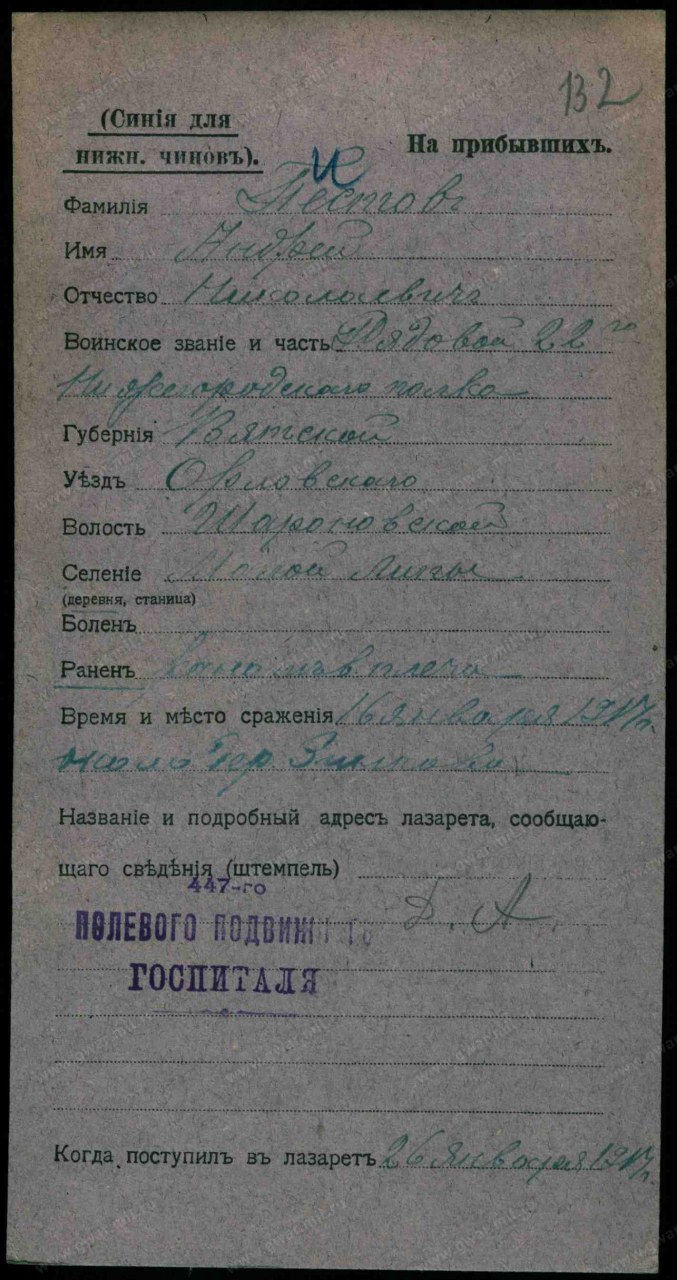 132
(Синія для
нижн. чиновъ).
На прибывшихъ.
И
Фамилія Пестовъ
Имя Андрей
Отчество Николаевичъ
Воинское званіе и часть Рядовой 22го
Нижегородскаго полка
Губернія Вятской
Уѣздъ Орловскаго
Волость Шароновской
Селеніе
(деревня, станица)
Боленъ
Раненъ плеча
Время и мѣсто сраженія 16 Января 1917г.
около дер.
Названіе и подробный адресъ лазарета, сообщаю-
щаго свѣдѣнія (штемпель)
447-го
ПОЛЕВОГО ПОДВИЖНОГО
ГОСПИТАЛЯ
Д. А.
Когда поступилъ въ лазаретъ 26 Января 1917г.